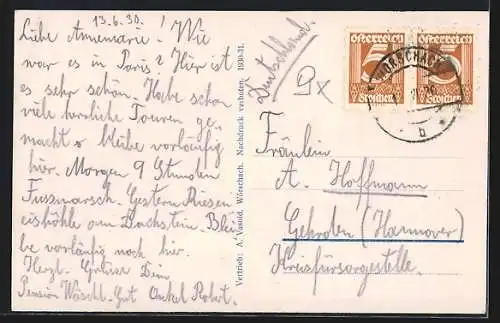 13.6.30.
Liebe Annemarie! Wie
war es in Paris? Hier ist
es sehr schön. Habe schon
viele herrliche Touren ge-
macht u. bleibe vorläufig
hier. Morgen 9 Stunden
Fussmarsch. Gestern Riesen
eishöhle am Dachstein. Blei
be vorläufig noch hier.
Herzl. Grüsse Dein
Pension Wäschl-Gut Onkel Robert.
Vertrieb: A. Wörschach. Nachdruck verboten. 1930-31.
Deutschland.
9x
Österreich Österreich
5
Groschen Groschen
WÖRSCHACH
b
Fräulein
A. Hoffmann
Gehrden (Hannover)
Kreisfürsorgestelle.